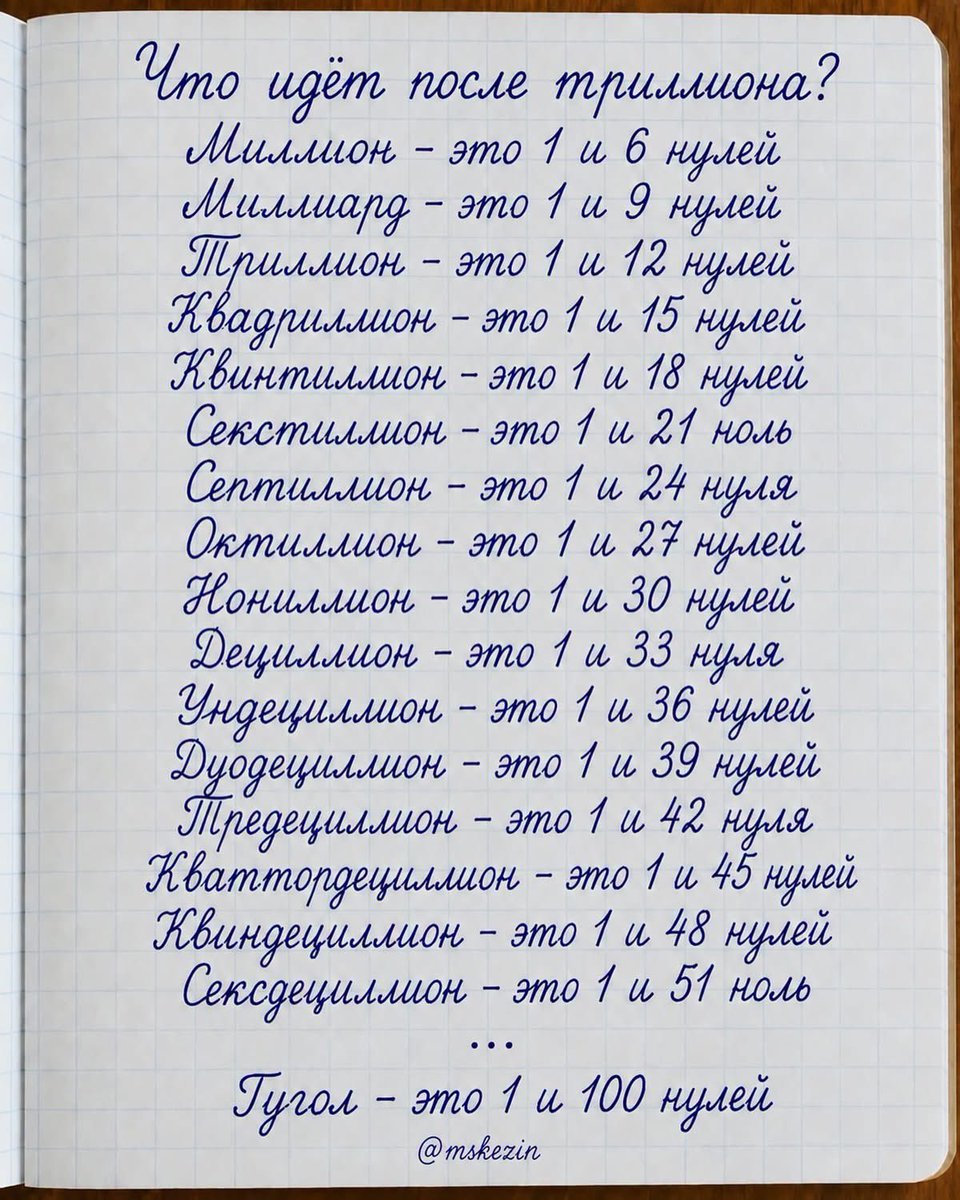 Что идёт после триллиона?
Миллион – это 1 и 6 нулей
Миллиард – это 1 и 9 нулей
Триллион – это 1 и 12 нулей
Квадриллион – это 1 и 15 нулей
Квинтиллион – это 1 и 18 нулей
Секстиллион – это 1 и 21 ноль
Септиллион – это 1 и 24 нуля
Октиллион – это 1 и 27 нулей
Нониллион – это 1 и 30 нулей
Дециллион – это 1 и 33 нуля
Ундециллион – это 1 и 36 нулей
Дуодециллион – это 1 и 39 нулей
Тредециллион – это 1 и 42 нуля
Кваттордециллион – это 1 и 45 нулей
Квиндециллион – это 1 и 48 нулей
Сексдециллион – это 1 и 51 ноль
...
Гугол – это 1 и 100 нулей
@mskezin